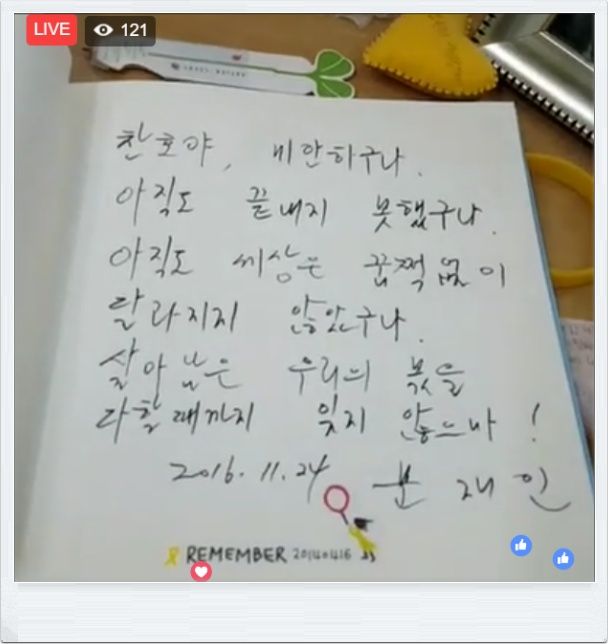 LIVE 121
찬호야, 미안하구나.
아직도 끝내지 못했구나.
아직도 세상은 꿈쩍 없이
달라지지 않았구나.
살아남은 우리의 몫을
다할때까지 잊지 않으마!
2016.11.24 문재인
REMEMBER 20140416